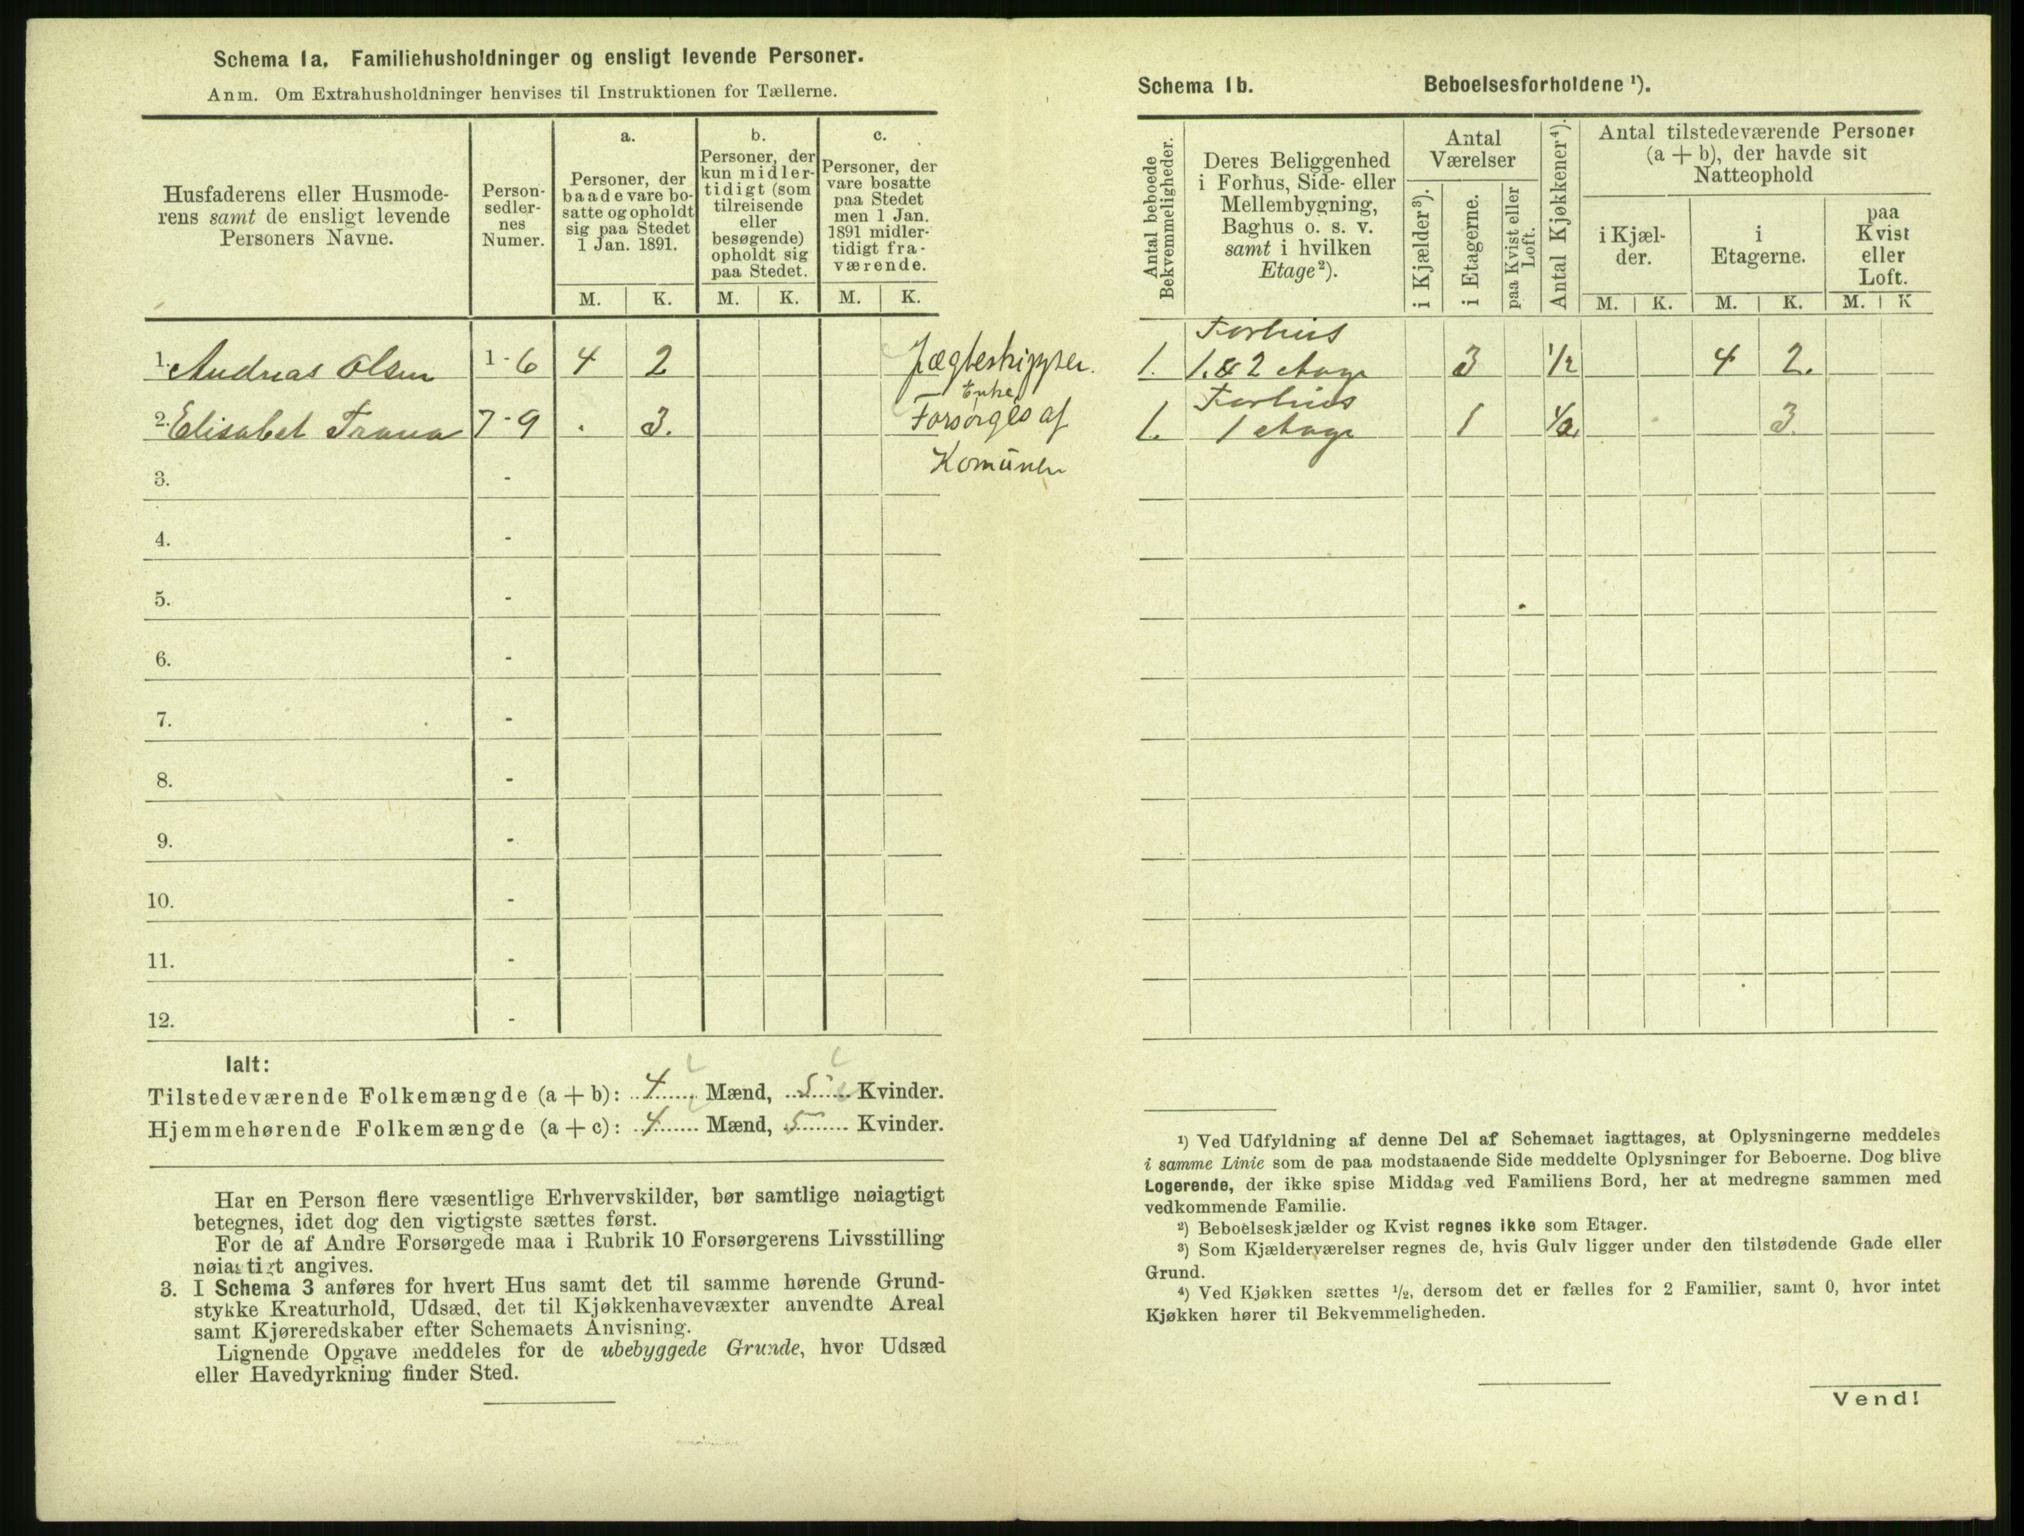 Schema 1a. Familiehusholdninger og ensligt levende Personer.
Anm. Om Extrahusholdninger henvises til Instruktionen for Tællerne.
Husfaderens eller Husmoderens samt de ensligt levende Personers Navne.
Personsedlernes Numer.
a.
Personer, der baade vare bosatte og opholdt sig paa Stedet 1 Jan. 1891.
b.
Personer, der kun midlertidigt (som tilreisende eller besøgende) opholdt sig paa Stedet.
c.
Personer, der vare bosatte paa Stedet men 1 Jan. 1891 midlertidigt fraværende.
M. K. M. K. M. K.
1. Andreas Olsen 1-6 4 2 Jægteskipper.
2. Elisabet Trana 7-9 . 3. Enke Forsørges af
Komunen
3. -
4. -
5. -
6. -
7. -
8. -
9. -
10. -
11. -
12. -
Ialt:
Tilstedeværende Folkemængde (a + b): 4 Mænd, 5 Kvinder.
Hjemmehørende Folkemængde (a + c): 4 Mænd, 5 Kvinder.
Har en Person flere væsentlige Erhvervskilder, bør samtlige nøiagtigt
betegnes, idet dog den vigtigste sættes først.
For de af Andre Forsørgede maa i Rubrik 10 Forsørgerens Livsstilling
nøiagtigt angives.
3. I Schema 3 anføres for hvert Hus samt det til samme hørende Grund-
stykke Kreaturhold, Udsæd, det til Kjøkkenhavevæxter anvendte Areal
samt Kjøreredskaber efter Schemaets Anvisning.
Lignende Opgave meddeles for de ubebyggede Grunde, hvor Udsæd
eller Havedyrkning finder Sted.
Schema 1b. Beboelsesforholdene ¹).
Antal beboede Bekvemmeligheder.
Deres Beliggenhed i Forhus, Side- eller Mellembygning, Baghus o. s. v. samt i hvilken Etage ²).
Antal Værelser
i Kjælder ³).
i Etagerne.
paa Kvist eller Loft.
Antal Kjøkkener ⁴).
Antal tilstedeværende Personer (a + b), der havde sit Natteophold
i Kjælder.
i Etagerne.
paa Kvist eller Loft.
M. K. M. K. M. K
Forhus
1. 1. & 2 Etage 3 1/2 4 2.
Forhus
1. 1 Etage 1 1/2 3.
¹) Ved Udfyldning af denne Del af Schemaet iagttages, at Oplysningerne meddeles
i samme Linie som de paa modstaaende Side meddelte Oplysninger for Beboerne. Dog blive
Logerende, der ikke spise Middag ved Familiens Bord, her at medregne sammen med
vedkommende Familie.
²) Beboelseskjælder og Kvist regnes ikke som Etager.
³) Som Kjælderværelser regnes de, hvis Gulv ligger under den tilstødende Gade eller
Grund.
⁴) Ved Kjøkken sættes ¹/₂, dersom det er fælles for 2 Familier, samt 0, hvor intet
Kjøkken hører til Bekvemmeligheden.
Vend!